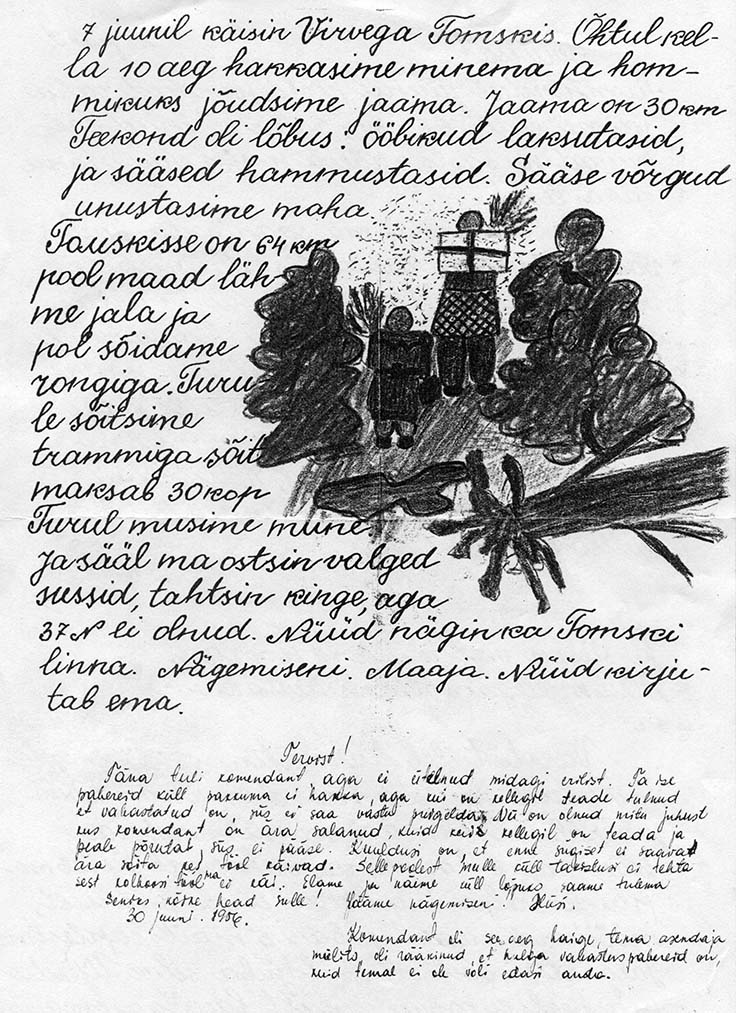 7 juunil käisin Virvega Tomskis. Õhtul kel-
la 10 aeg hakkasime minema ja hom-
mikuks jõudsime jaama. Jaama on 30 km
Teekond oli lõbus: ööbikud laksutasid,
ja sääsed hammustasid. Sääse võrgud
unustasime maha.
Tauskisse on 64 km
pool maad läh-
me jala ja
pol sõidame
rongiga. Turu
le sõitsime
trammiga sõit
maksab 30 kop
Turul musime mune
Ja sääl ma ostsin valged
sussid, tahtsin kinge, aga
37 N ei olnud. Nüüd nägin ka Tomski
linna. Nägemiseni. Maaja. Nüüd kirju-
tab ema.
Tervist!
Täna tuli komendant, aga ei ütelnud midagi erilist. Ta ise
pabereid küll pakkuma ei hakka, aga kui on kellegil teade tulnud
et vabastatud on, siis ei saa vastu puigelda. Nii on olnud mitu juhust
kus komendant on ära salanud, kuid kellegil on teada ja
peale põrutat, siis ei pääse. Kuuldusi on, et enne sügiset ei saavat
ära sõita kes tööl käivad. Sellepedest mulle küll takistusi ei tehta
sest kolhoosi tööl ma ei käi. Elame ja näime küll lõpuks saame tulema
Senoks, kõike head Sulle! Jääme nägemiseni!
30 juuni. 1956.
Komendant oli see aeg haige, tema asendaja
miilits, oli rääkinud, et vabastuspabereid on,
kuid temal ei ole või edasi anda.